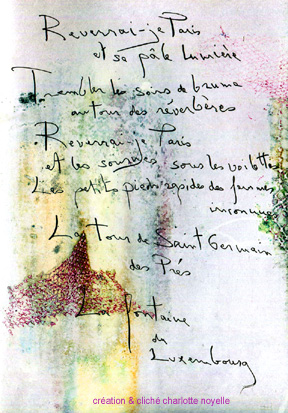 Reverrai-je Paris
et sa pâle lumière
Trembler les soirs de brume
autour des réverbères
Reverrai-je Paris
et les sourires sous les voilettes
Les petits pieds rapides des femmes
inconnues
La tour de Saint Germain
des Prés
La fontaine
du
Luxembourg
création & cliché charlotte noyelle